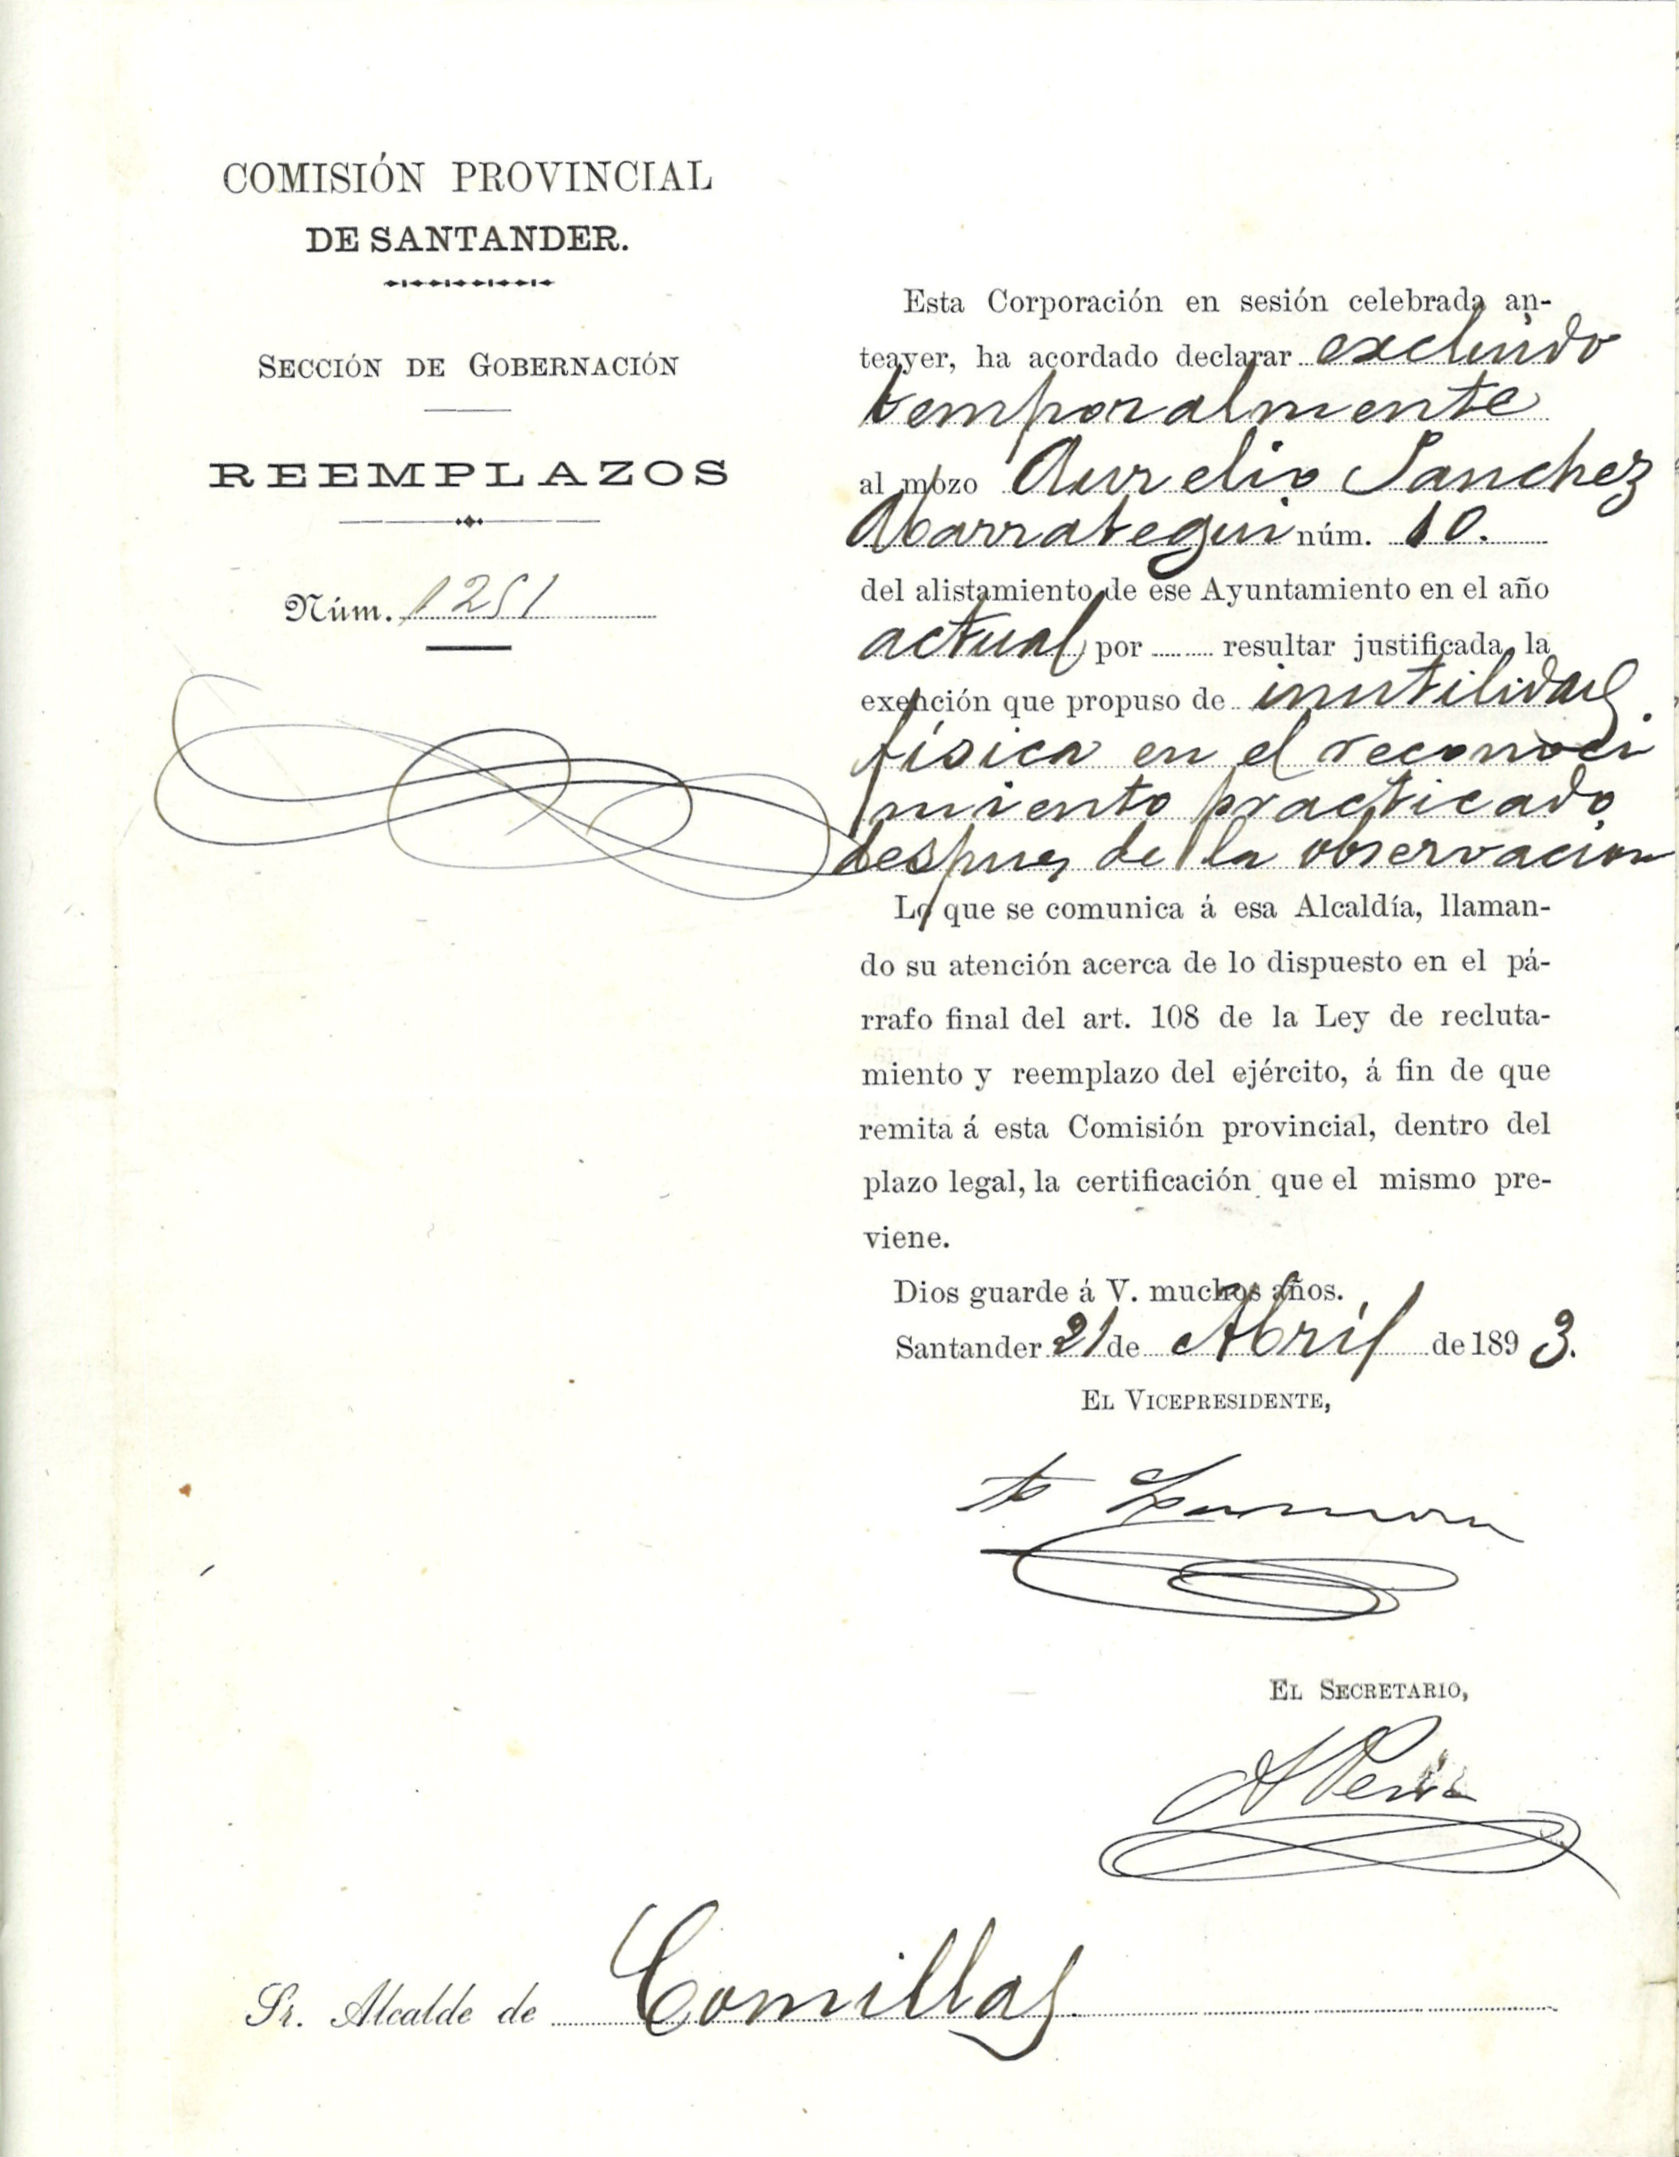 COMISIÓN PROVINCIAL
DE SANTANDER.
SECCIÓN DE GOBERNACIÓN
REEMPLAZOS
Núm. 1251
Esta Corporación en sesión celebrada an-
teayer, ha acordado declarar excluido
temporalmente
al mozo Aurelio Sanchez
Abarrategui núm. 10.
del alistamiento de ese Ayuntamiento en el año
actual por ........ resultar justificada la
exención que propuso de inutilidad
física en el reconoci
miento practicado
despues de la observacion
Lo que se comunica á esa Alcaldía, llaman-
do su atención acerca de lo dispuesto en el pá-
rrafo final del art. 108 de la Ley de recluta-
miento y reemplazo del ejército, á fin de que
remita á esta Comisión provincial, dentro del
plazo legal, la certificación que el mismo pre-
viene.
Dios guarde á V. muchos años.
Santander 21 de Abril de 1893.
EL VICEPRESIDENTE,
EL SECRETARIO,
Sr. Alcalde de Comillas